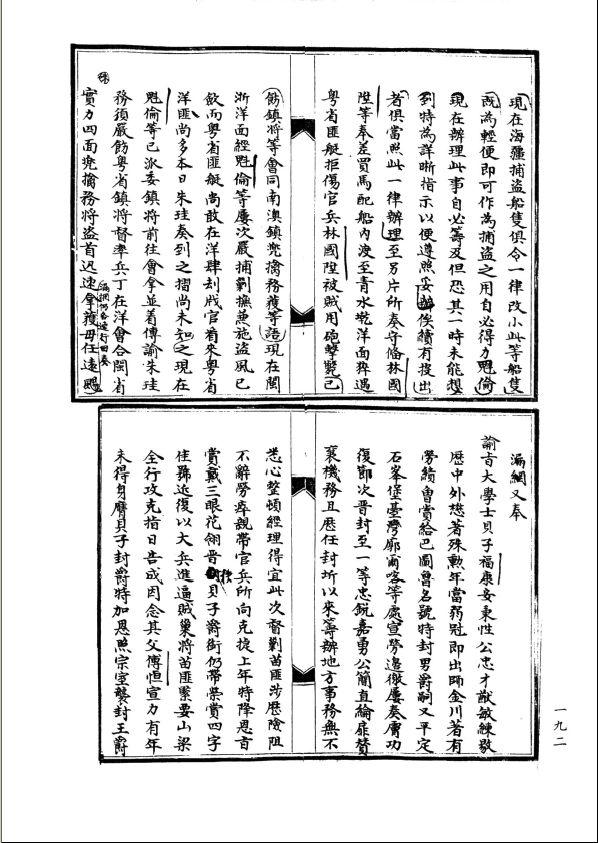 現在海疆捕盜船隻俱令一律改小此等船隻
既為輕便即可作為捕盜之用自必得力魁倫
現在辦理此事自必籌及但恐其一時未能想
到特為詳晰指示以便遵照妥辦俟續有投出
者俱當照此一律辦理至另片所奏守備林國
陞等奉差買馬配船內渡至青水墘洋面猝遇
粤省匪艇拒傷官兵林國陞被賊用砲擊斃已
飭鎮將等會同南澳鎮兜擒務獲等語現在閩
浙洋面經魁倫等屢次嚴捕剿撫兼施盜風已
斂而粤省匪艇尚敢在洋肆刦戕官看來粤省
洋匪尚多本日朱珪奏到之摺尚未知之現在
魁倫等已派委鎮將前往會拿並着傳諭朱珪
務須嚴飭粤省鎮將督率兵丁在洋會合閩省
實力四面兜擒務將盜首迅速拿獲毋任遠颺
漏網仍各速行回奏
漏網又奉
諭旨大學士貝子福康安秉性公忠才猷敏練敭
歷中外懋著殊勳年當弱冠即出師金川著有
勞績曾賞給巴圖魯名號特封男爵嗣又平定
石峯堡臺灣廓爾喀等處宣勞邊徼屢奏膚功
復節次晉封至一等忠銳嘉勇公簡直綸扉贊
襄機務且歷任封圻以來籌辦地方事務無不
悉心整頓經理得宜此次督剿苗匪涉歷險阻
不辭勞瘁親帶官兵所向克捷上年特降恩旨
賞戴三眼花翎晉授貝子爵銜仍帶榮賞四字
佳號近復以大兵進逼賊巢將苗匪緊要山梁
全行攻克指日告成因念其父傅恒宣力有年
未得身膺貝子封爵特加恩照宗室襲封王爵
一九二